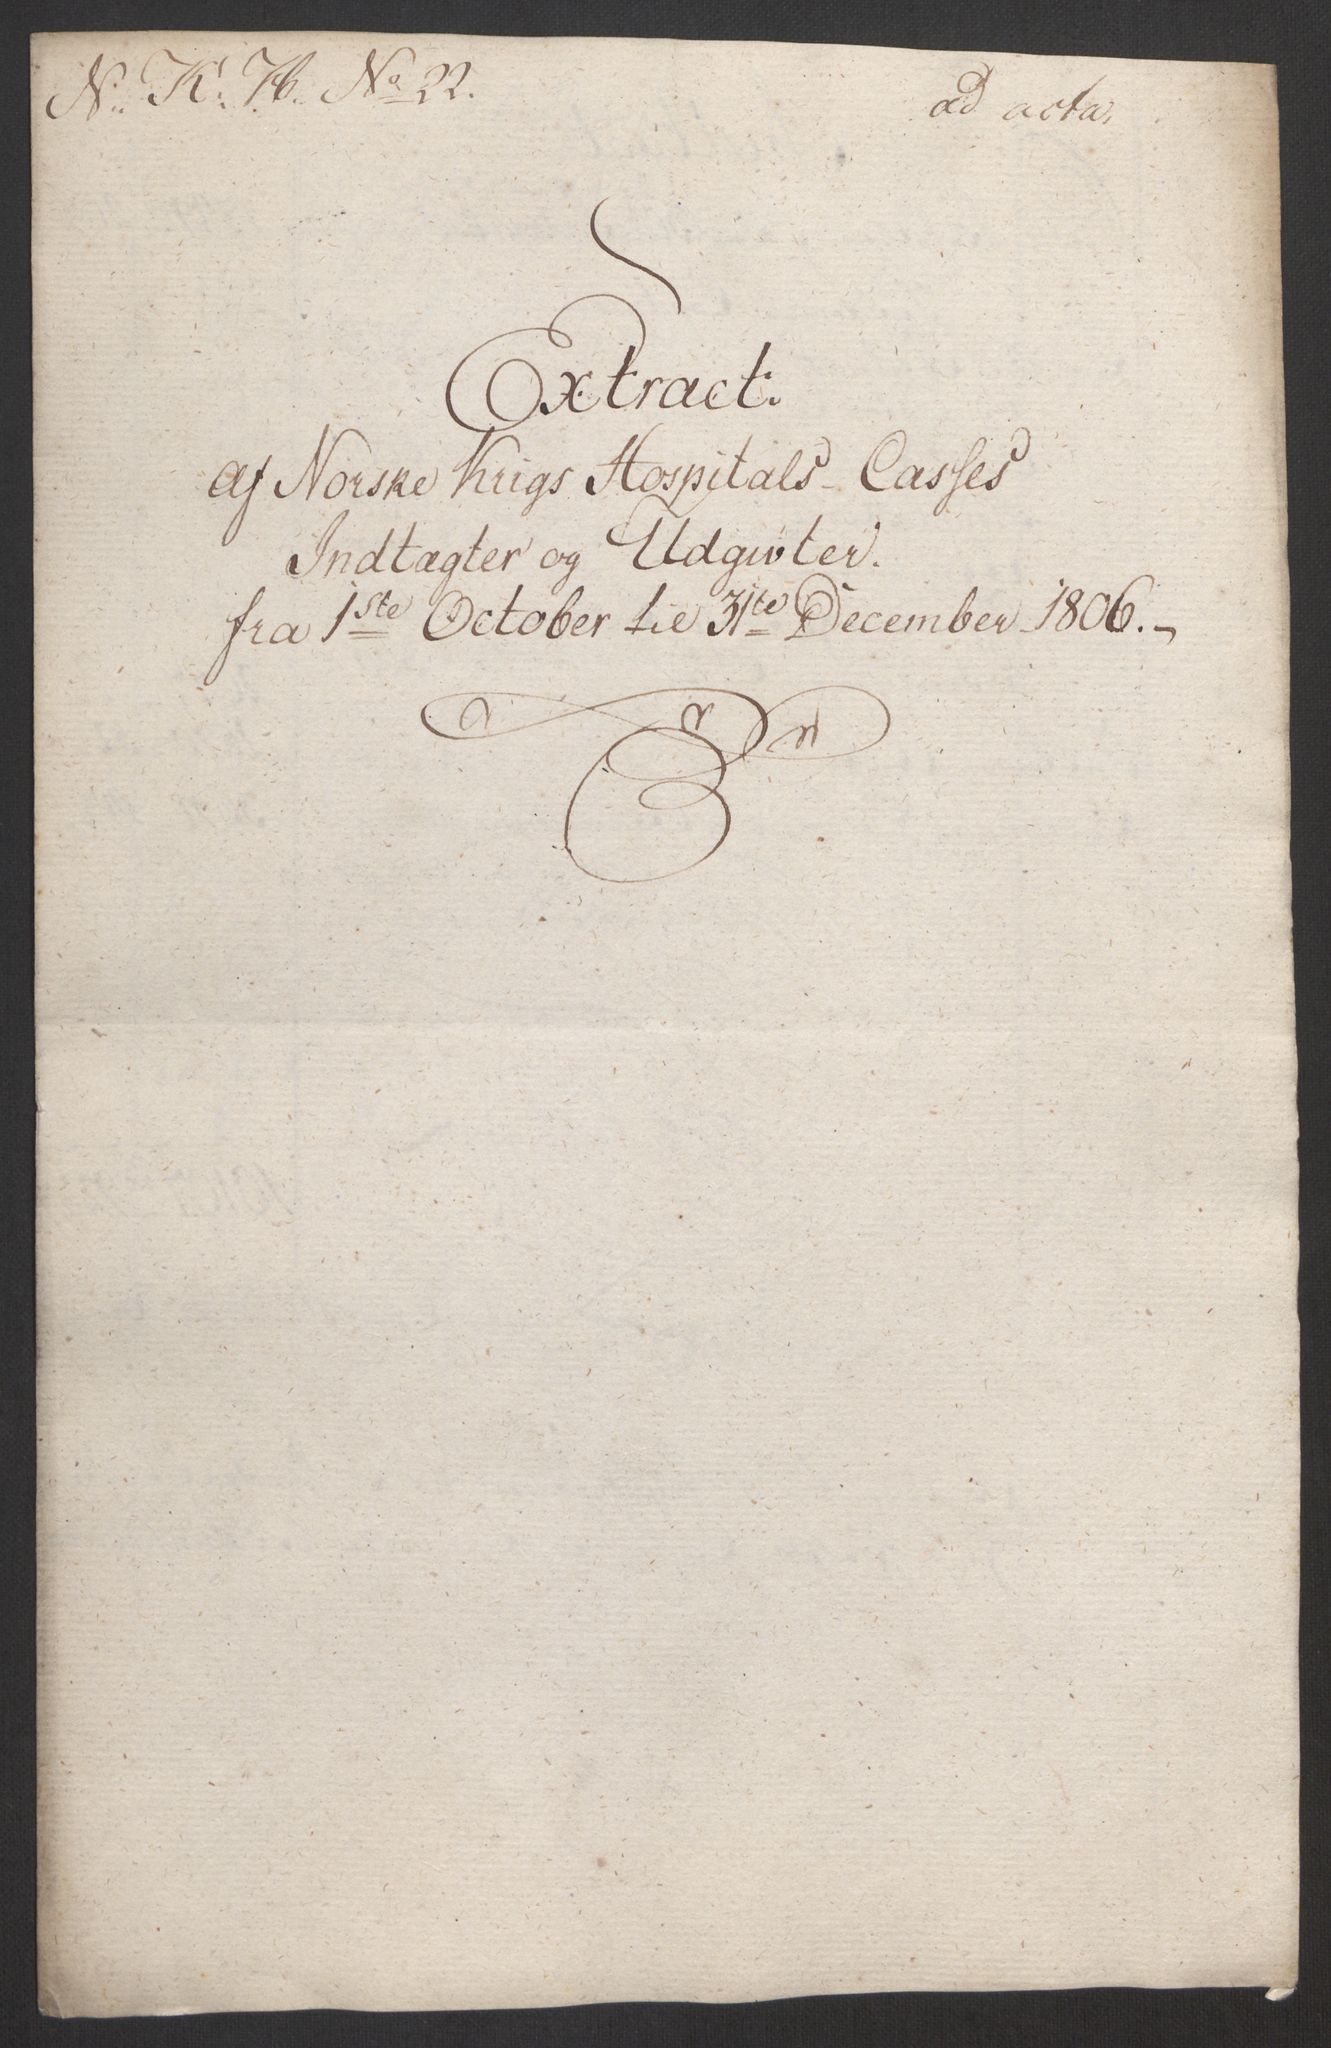 N. K. H. No 22.
ad acta.
Extract.
af Norske Krigs Hospitals-Casses
Indtægter og Udgivter.
fra 1ste October til 31te December 1806.-